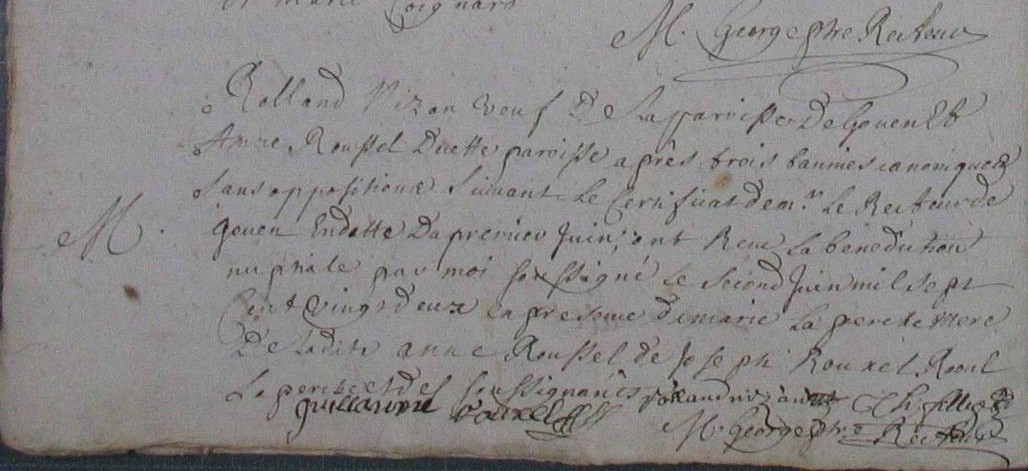 et marie Coignard
M. George ptre Recteur
Rolland Vizon veuf De La parroisse De Goven Et
Anne Roussel De cette paroisse après trois bannies canoniques
Sans oppositions Suivant Le Certificat de mr. Le Recteur de
M.
goven En datte Du premier Juin, ont Receu La benediction
nuptiale par moi soussigné Le second Juin mil sept
Cent vingt deux En presence de marie La perche mere
De Ladite anne Roussel de Joseph Rouxel Raoul
La perche et des soussignants
guillaume Rouxel
M. George ptre Recteur